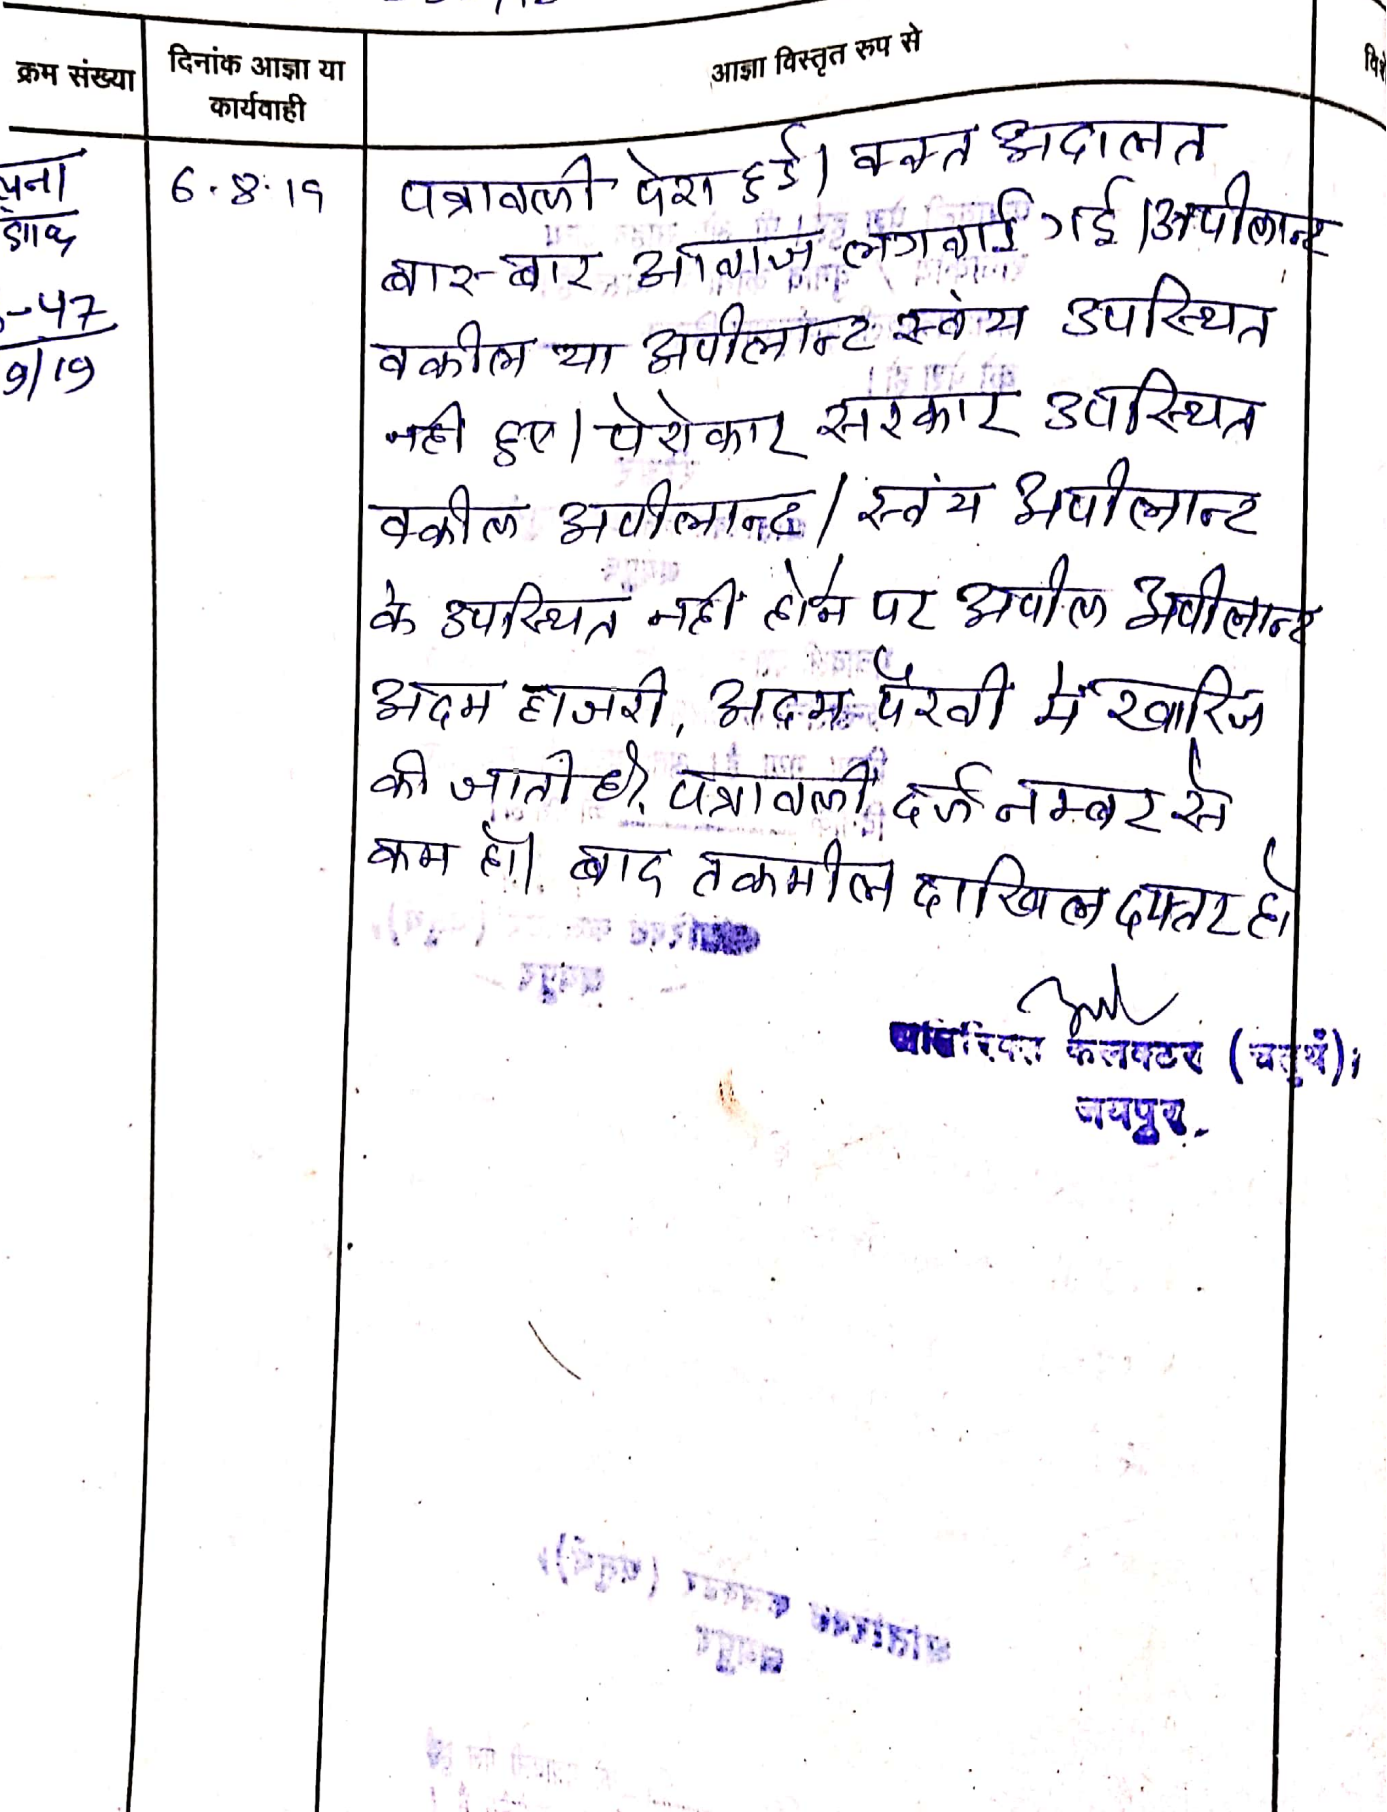 क्रम संख्या
दिनांक आज्ञा या
कार्यवाही
आज्ञा विस्तृत रुप से
6.8.19
-47
9/19
पत्रावली पेश हुई। वक्त अदालत
बार-बार आवाज लगवाई गई। अपीलान्ट
वकील या अपीलान्ट स्वंय उपस्थित
नही हुए। पेरोकार सरकार उपस्थित
वकील अपीलान्ट/स्वंय अपीलान्ट
के उपस्थित नही होने पर अपील अपीलान्ट
अदम हाजरी, अदम पैरवी में खारिज
की जाती है। पत्रावली दर्ज नम्बर से
कम हो। बाद तकमील दाखिल दफ्तर हो
कलक्टर (चतुर्थ)
जयपुर